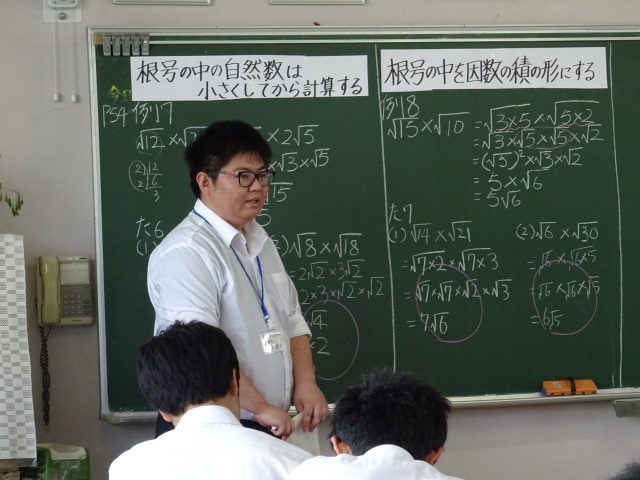 根号の中の自然数は
小さくしてから計算する
P54 例17
√12×√
2)12
2)6
3
×2√5
×√3×√5
√15
た6
√8×√18
=2√2×3√2
×√2×√2
根号の中を因数の積の形にする
例18
√15×√10
=√3×5×√5×2
=√3×√5×√5×√2
=(√5)²×√3×√2
=5×√6
=5√6
た7
(1)√14×√21
=√7×2×√7×3
=√7×√7×√2×√3
=7√6
(2)√6×√30
=√6×√6×5
=√6×√6×√5
=6√5